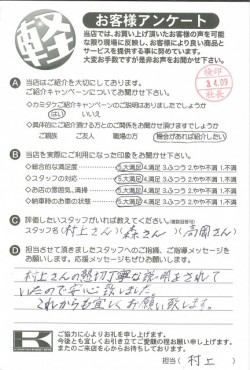 軽
お客様アンケート
当店では、お買い上げ頂いたお客様の声を可能
な限り現場に反映し、お客様により良い商品と
サービスを提供する事に努めています。
大変お手数ですが是非お声をお聞かせ下さい。
検印
3.4.09
社長
A 当店はご紹介を大切にしております。
ご紹介キャンペーンについてお聞かせ下さい。
◇カミタケご紹介キャンペーンのご説明はありましたでしょうか
はい いいえ
◇具体的にご紹介頂ける方とのご関係をお聞かせ頂けますでしょうか
ご親族 ご友人 職場の方 機会があれば紹介したい
B 当店を実際にご利用になった印象をお聞かせ下さい。
◇総合的な満足度 5.大満足 4.満足 3.ふつう 2.やや不満 1.不満
◇スタッフの対応 5.大満足 4.満足 3.ふつう 2.やや不満 1.不満
◇お店の雰囲気、清掃 5.大満足 4.満足 3.ふつう 2.やや不満 1.不満
◇納車時のお車の状態 5.大満足 4.満足 3.ふつう 2.やや不満 1.不満
C 評価したいスタッフがいれば教えてください。(複数回答可)
スタッフ名(村上さん)(森さん)(高岡さん)
D 担当させて頂きましたスタッフへのご指摘、ご指導メッセージを
お聞かせ下さい。応援メッセージもお願いします。
村上さんの親切丁寧な説明をされて
いたので安心致しました。
これからも宜しくお願い致します。
K
ご協力に心よりお礼を申し上げます。
今後とも宜しくお引き立てご愛顧の程お願い申し上げます。
またのご来店を心からお待ちしております。
担当(村上)